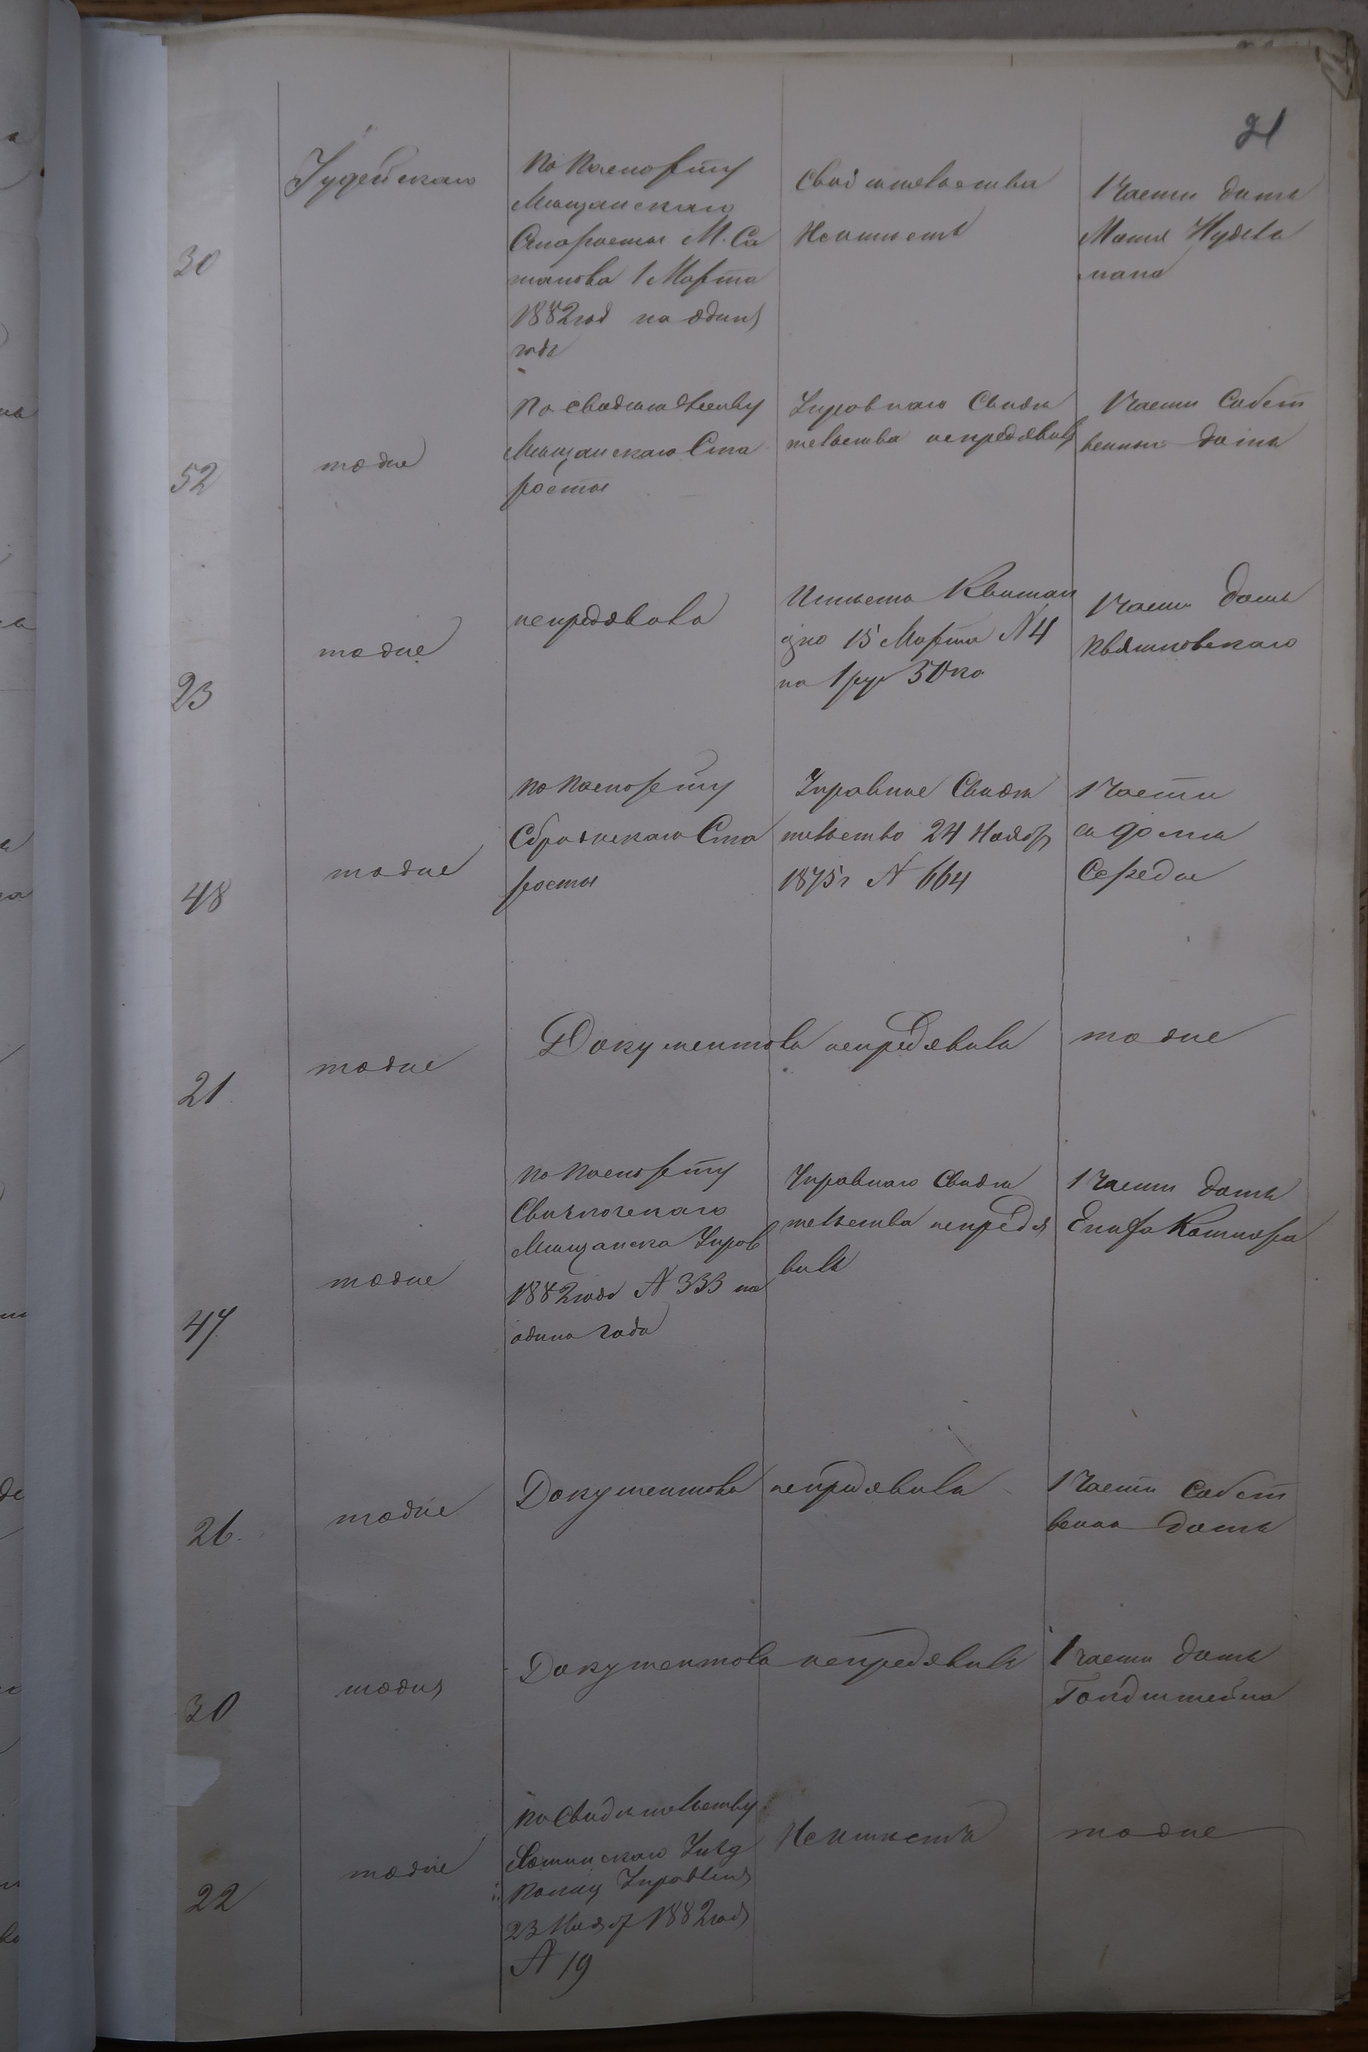 21
30
Іудейскаго
По паспорту
Мѣщанскаго
Старосты М. Са
танова 1 Марта
1882 год на один
годъ
Свидѣтельства
Неимѣетъ
1 Части домъ
Нудель
мана
52
тоже
По свидѣтельству
Мѣщанскаго Ста
росты
Управнаго Свидѣ
тельства непредъявилъ
1 Части Собст
венный домъ
23
тоже
непредъявилъ
Имѣетъ Квитан
цію 15 Марта № 4
на 1 рур 50 ко
1 Части домъ
Квятковскаго
48
тоже
По паспорту
Ста
росты
Управное Свидѣ
тельство 24 Ноябр
1875 г № 664
1 Части
Середы
21
тоже
Документовъ непредъявилъ
тоже
47
тоже
По паспорту
Мѣщанска Управ
1882 года № 333 на
одинъ годъ
Управнаго Свидѣ
тельства непредъя
вилъ
1 Части домъ
26
тоже
Документовъ непредъявилъ
1 Части Собст
венн домъ
30
тоже
Документовъ непредъявилъ
1 части домъ
Голдштейна
22
тоже
По Свидѣтельству
Уѣзд
Полиц Управлен
23 Нояб 1882 год
№ 19
Неимѣетъ
тоже